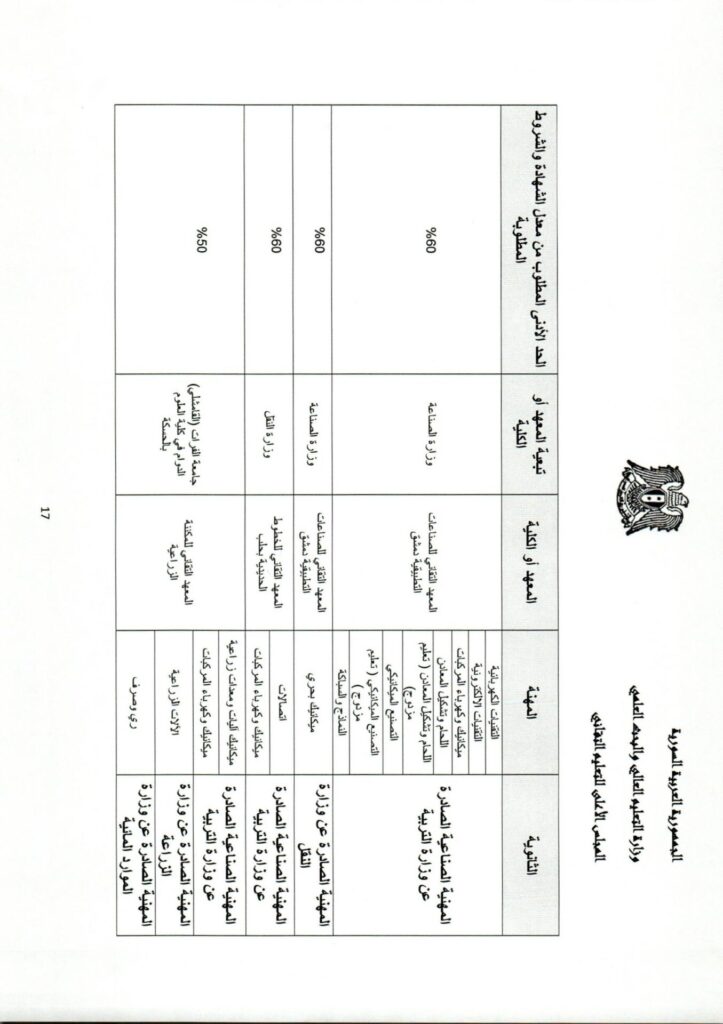 الجمهورية العربية السورية
وزارة التعليم العالي والبحث العلمي
المجلس الأعلى للتعليم التقاني
الثانوية
المهنة
المعهد أو الكلية
تبعية المعهد أو
الكلية
الحد الأدنى المطلوب من معدل الشهادة والشروط
المطلوبة
المهنية الصناعية الصادرة
عن وزارة التربية
التقنيات الكهربائية
التقنيات الالكترونية
ميكانيك وكهرباء المركبات
اللحام وتشكيل المعادن
اللحام وتشكيل المعادن ( تعليم
مزدوج)
التصنيع الميكانيكي
التصنيع الميكانيكي ( تعليم
مزدوج )
النماذج و السباكة
المعهد التقاني للصناعات
التطبيقية دمشق
وزارة الصناعة
%60
المهنية الصادرة عن وزارة
النقل
ميكانيك بحري
المعهد التقاني للصناعات
التطبيقية دمشق
وزارة الصناعة
%60
المهنية الصناعية الصادرة
عن وزارة التربية
اتصالات
ميكانيك وكهرباء المركبات
المعهد التقاني للخطوط
الحديدية بحلب
وزارة النقل
%60
المهنية الصناعية الصادرة
عن وزارة التربية
ميكانيك آليات ومعدات زراعية
ميكانيك وكهرباء المركبات
المهنية الصادرة عن وزارة
الزراعة
الآلات الزراعية
المهنية الصادرة عن وزارة
الموارد المائية
ري وصرف
المعهد التقاني للمكننة
الزراعية
جامعة الفرات (القامشلي)
الدوام في كلية العلوم
بالحسكة
%50
17